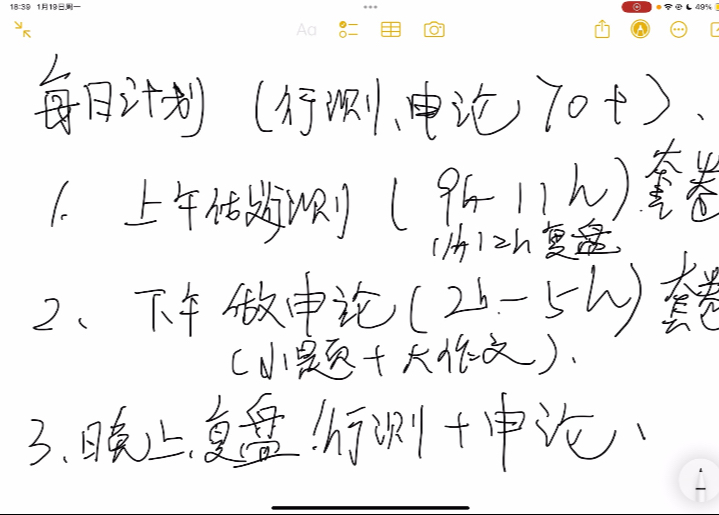 18:39 1月19日周一
49%
Aa
每日计划 (行测、申论 70+)、
1. 上午做行测 (9h-11h) 套卷
11h-12h 复盘
2、下午做申论 (2h-5h) 套卷
(小题+大作文).
3.晚上.复盘 行测+申论、